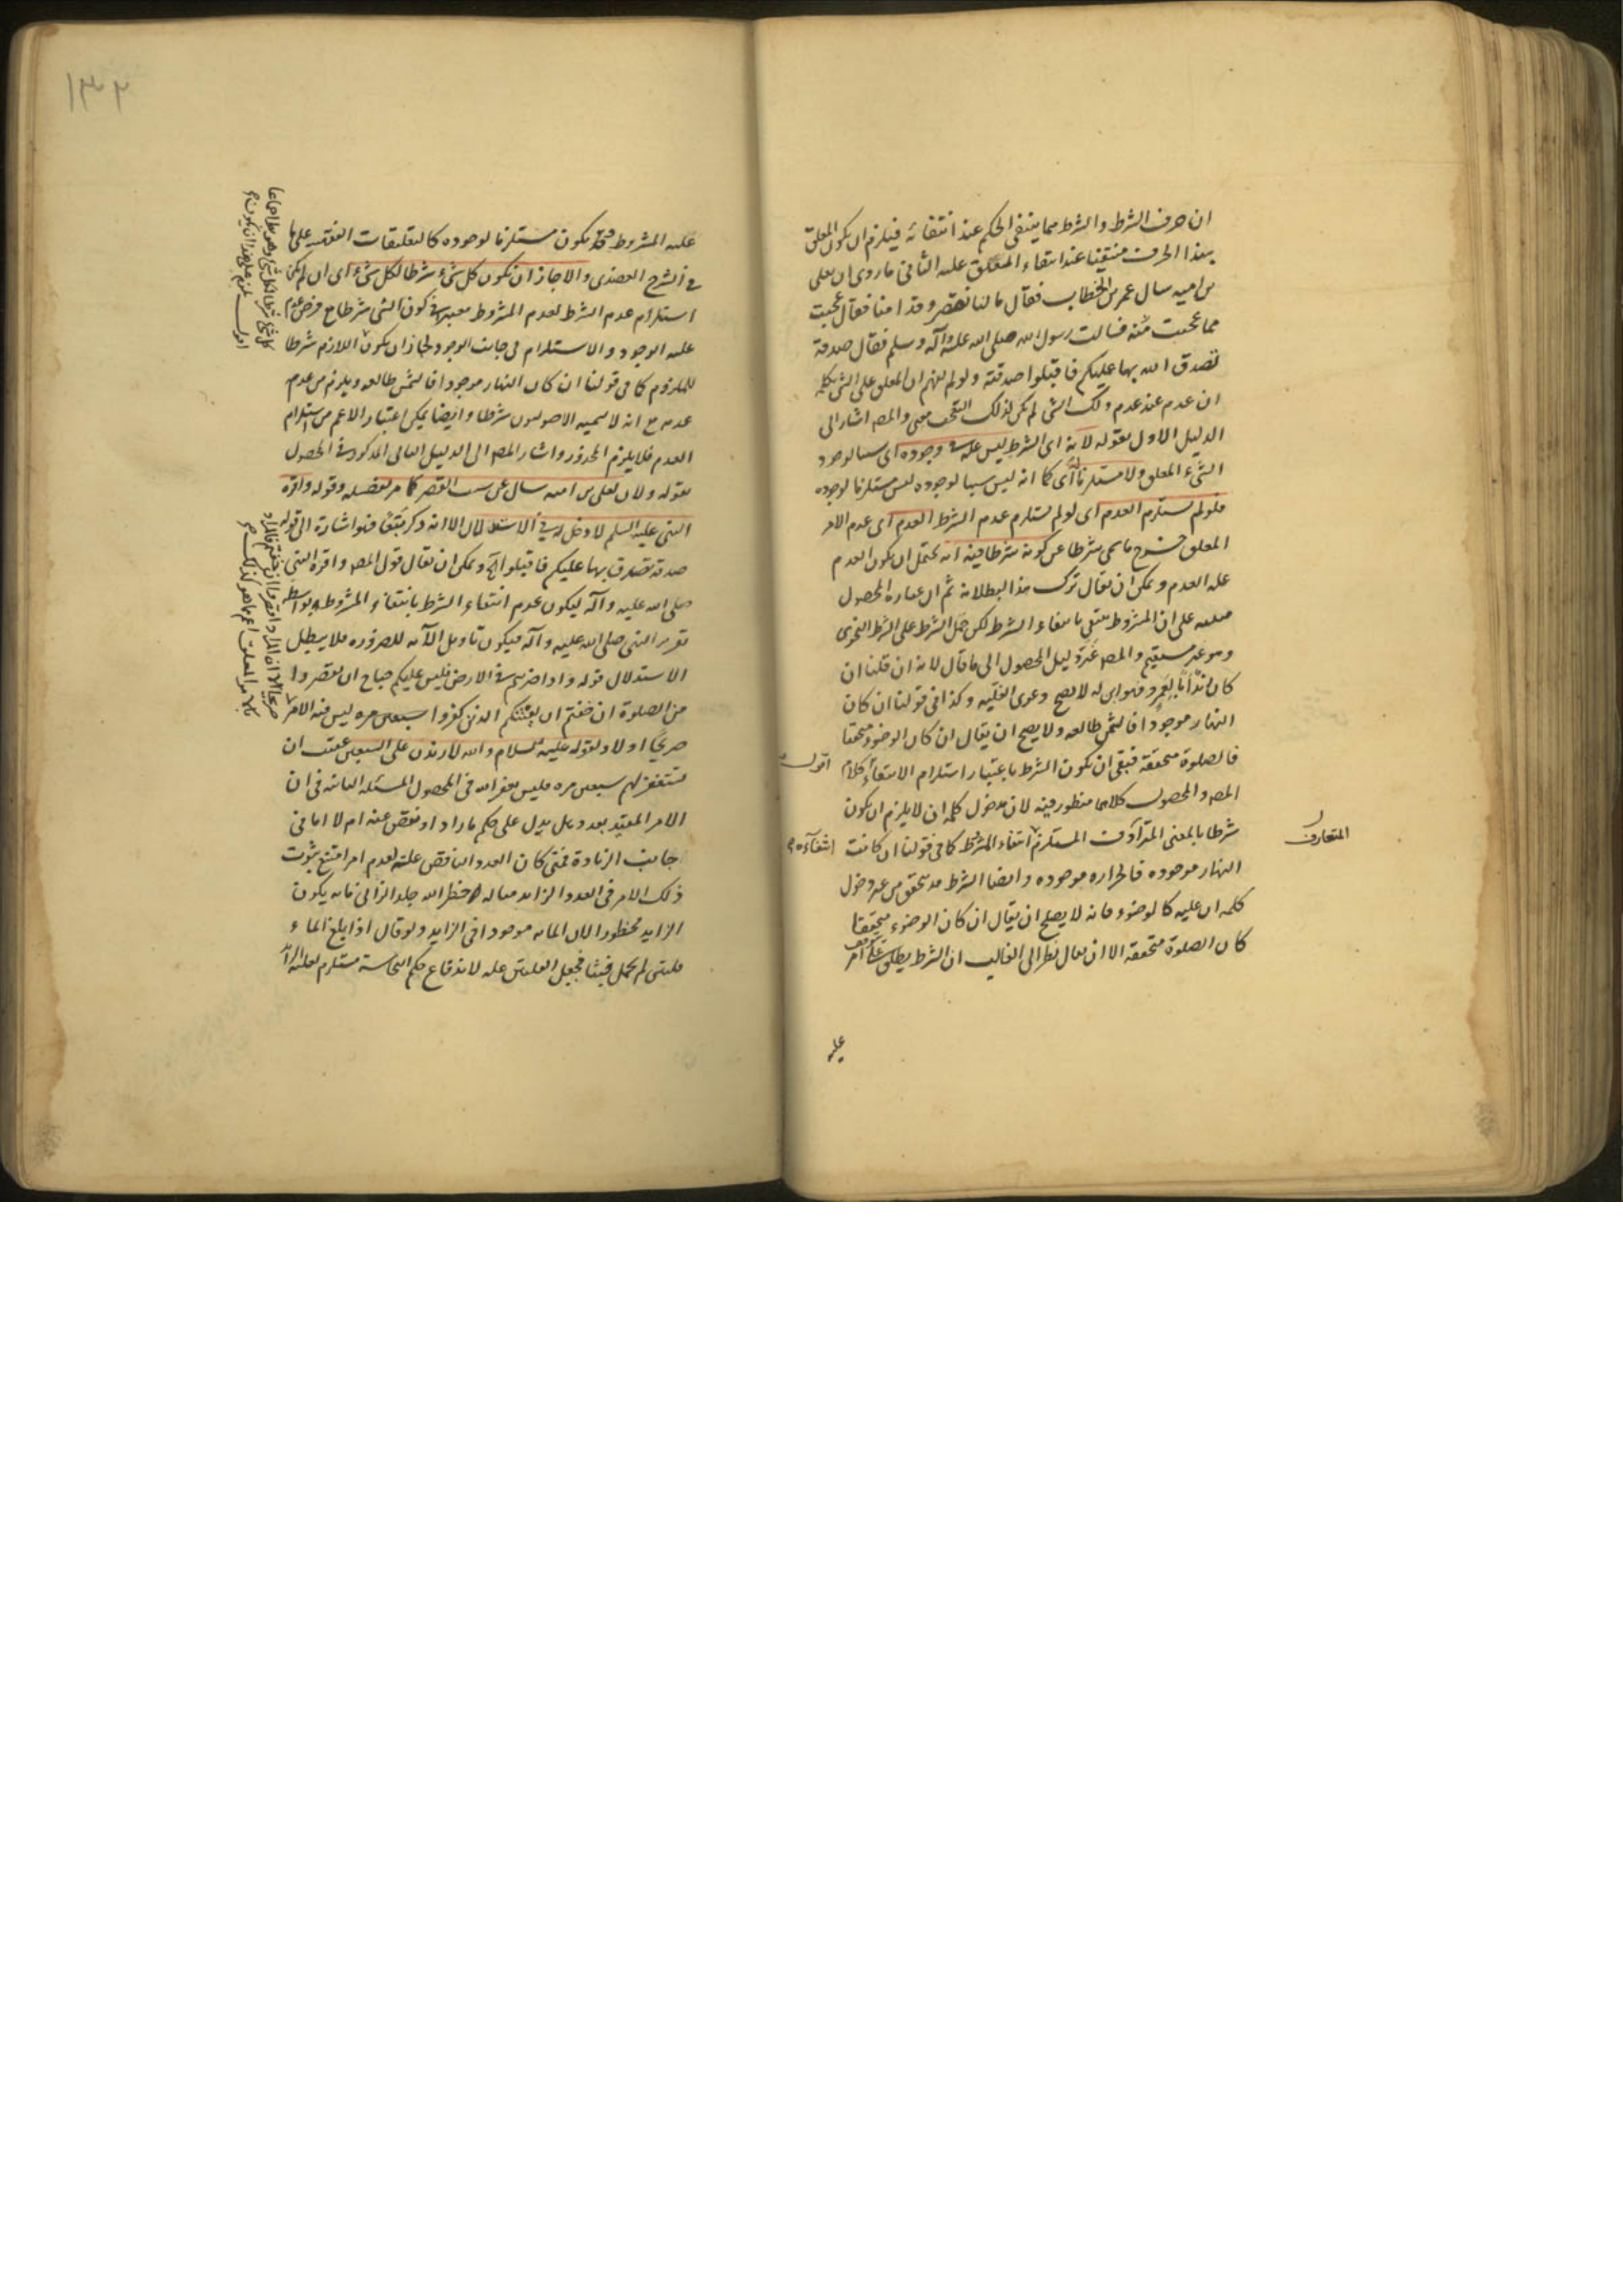 ان حرف الشرط والشرط مما ينتفى الحكم عند انتفائه فيلزم ان يكون المعلق
بهذا الحرف منتفيا عند انتفاء المعلق عليه الثانى ما روى ان يعلى
بن اميه سال عمر بن الخطاب فقال ما لنا نقصر وقد امنا فقال عجبت
مما عجبت منه فسالت رسول الله صلى الله عليه وآله وسلم فقال صدقة
تصدق الله بها عليكم فاقبلوا صدقته ولو لم يفهم ان المعلق على الشى بكلمه
ان عدم عند عدم ذلك الشى لم يكن لذلك التعجب معنى والمص اشار الى
الدليل الاول بقوله لانه اى الشرط ليس علة فى وجوده اى سببا لوجود
الشىء المعلق ولا مستلزما له اى كما انه ليس سببا لوجوده ليس مستلزما لوجوده
فلو لم يستلزم العدم اى لو لم يستلزم عدم الشرط العدم اى عدم الامر
المعلق خرج ما سمى شرطا عن كونه شرطا فيه انه يحتمل ان يكون العدم
علة العدم ويمكن ان يقال ترك هذا لبطلانه ثم ان عبارة المحصول
على ان المشروط ينتفى بانتفاء الشرط لكن حمل الشرط على الشرط النحوى
وهو غير مستقيم والمص غير دليل المحصول الى ما قال لانه ان قلنا ان
كان زيد ابا لعمرو فهو ابن له لا يصح دعوى العلية وكذا فى قولنا ان كان
النهار موجودا فالشمس طالعه ولا يصح ان يقال ان كان الوضوء متحققا
فالصلوة متحققه فبقى ان يكون الشرط باعتبار استلزام الانتفاء اقول كلام
المص والمحصول كلاهما منظور فيه لان مدخول كلمه ان لا يلزم ان يكون
شرطا بالمعنى المتعارف المستلزم انتفاءه انتفاء المشروط كما فى قولنا ان كانت
النهار موجوده فالحراره موجوده وايضا الشرط قد يتحقق من غير دخول
كلمه ان عليه كالوضوء فانه لا يصح ان يقال ان كان الوضوء متحققا
كان الصلوة متحققه الا ان يقال نظر الى الغالب ان الشرط يطلق على امر
عليه
اقول
انتفاءه
المتعارف
١٣٢
عليه المشروط وقد يكون مستلزما لوجوده كالتعليقات العقليه على ما
فى الشرح العضدى والا جاز ان يكون كل شىء شرطا لكل شىء اى ان لم يكن
استلزام عدم الشرط لعدم المشروط معتبرا فى كون الشى شرطا مع فرض عدم
علية الوجود والاستلزام فى جانب الوجود لجاز ان يكون اللازم شرطا
للملزوم كما فى قولنا ان كان النهار موجودا فالشمس طالعه ويلزم من عدم
عدمه مع انه لا يسميه الاصوليون شرطا وايضا يمكن اعتبار الاعم من استلزام
العدم فلا يلزم المحذور واشار المص الى الدليل الثانى المذكور فى المحصول
بقوله ولان يعلى بن اميه سال عن سبب القصر كما مر تفصيله وقوله واقره
النبى عليه السلم لا دخل له فى الاستدلال الا انه ذكر تبعا فهو اشارة الى قوله
صدقة تصدق بها عليكم فاقبلوا الخ ويمكن ان يقال قول المص واقره النبى
صلى الله عليه وآله ليكون عدم انتفاء الشرط بانتفاء المشروط بواسطة
تقرير النبى صلى الله عليه وآله فيكون تاويل الآيه للضروره فلا يبطل
الاستدلال قوله واذا ضربتم فى الارض فليس عليكم جناح ان تقصروا
من الصلوة ان خفتم ان يفتنكم الذين كفروا سبعين مره ليس فيه الامر
صريحا اولا ولقوله عليه السلام والله لازيدن على السبعين عقيب ان
تستغفر لهم سبعين مره فليس يغفر الله فى المحصول المسئله الثامنه فى ان
الامر المقيد بعدد هل يدل على حكم ما زاد او نقص عنه ام لا اما فى
جانب الزيادة فمتى كان العدد الناقص علة لعدم امر امتنع ثبوت
ذلك الامر فى العدد الزائد مثاله لو حظر الله جلد الزانى مائه يكون
الزايد محظورا لان المائه موجودا فى الزايد ولو قال اذا بلغ الماء
قلتين لم يحمل خبثا فجعل القلتين علة لاندفاع حكم النجاسة مستلزم لعلية الزائد